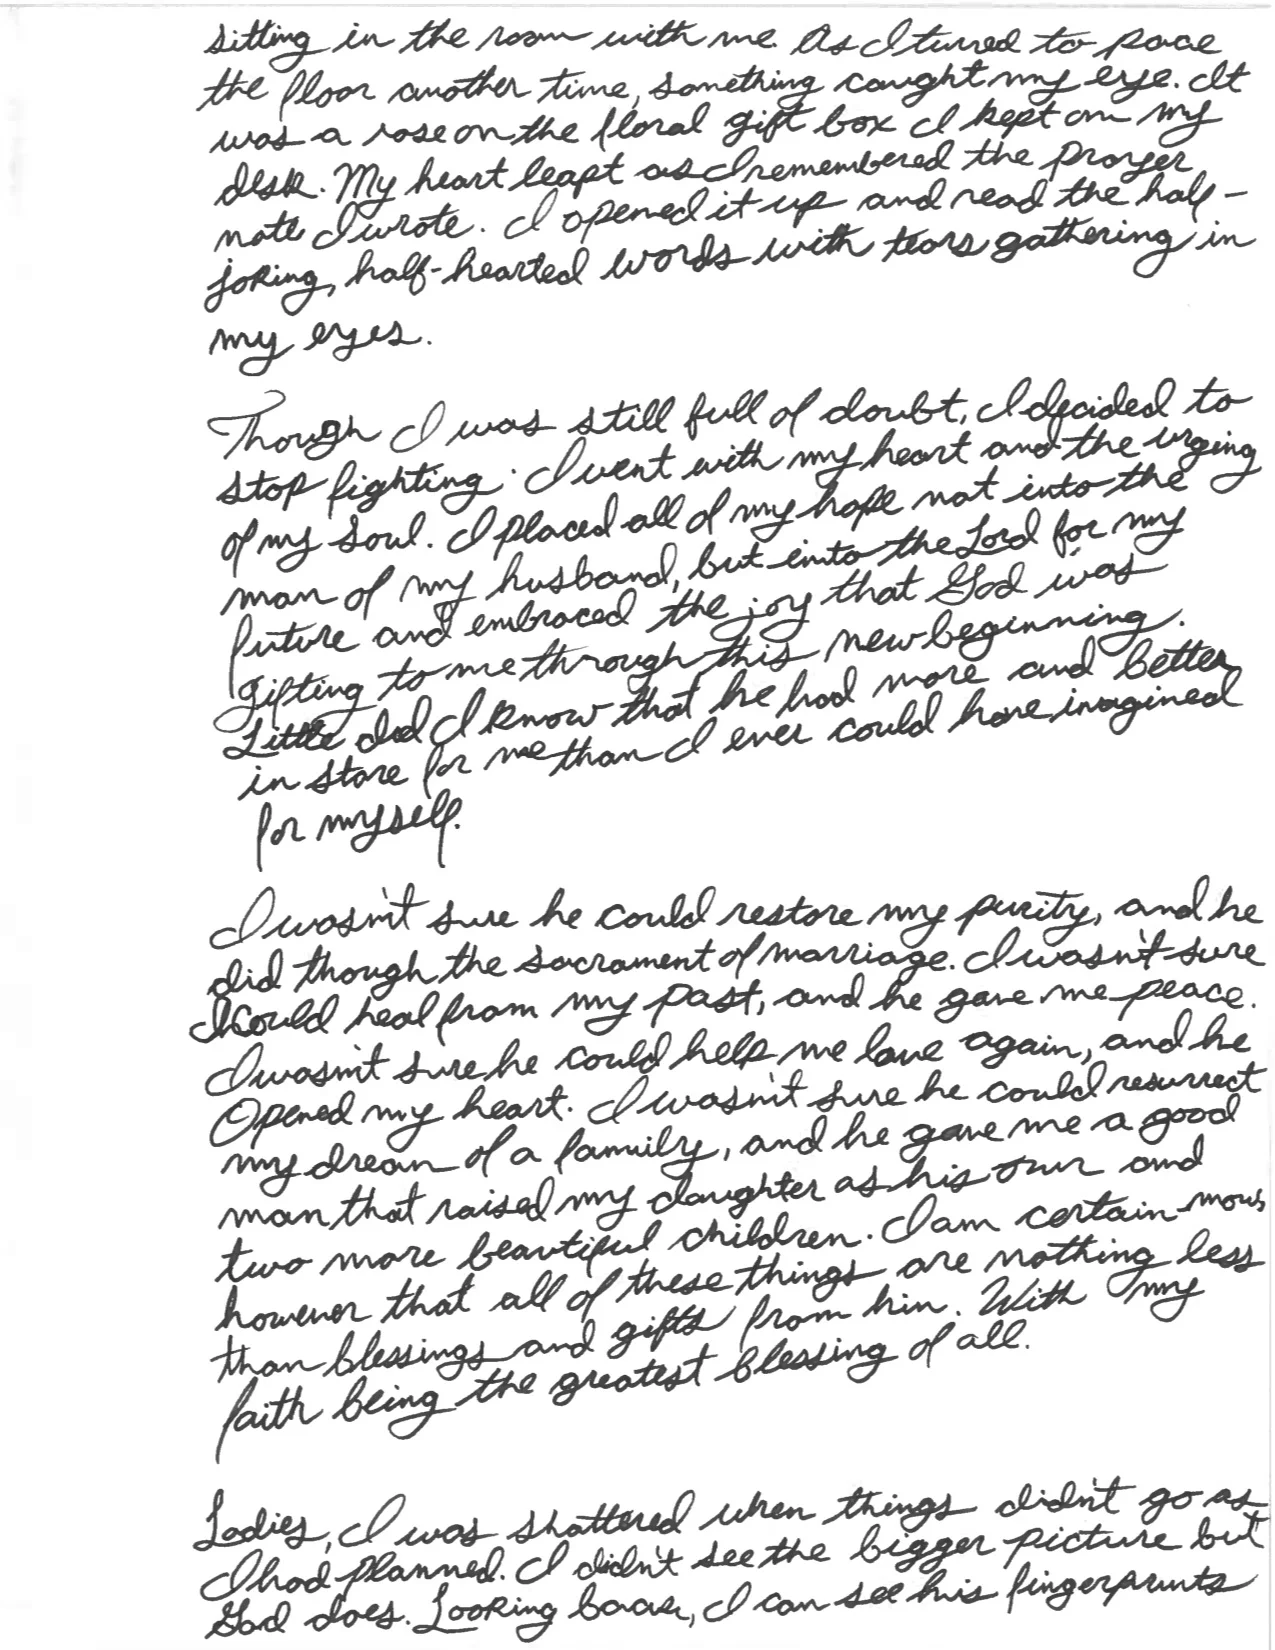 sitting in the room with me. As I turned to pace
the floor another time, something caught my eye. It
was a rose on the floral gift box I kept on my
desk. My heart leapt as I remembered the prayer
note I wrote. I opened it up and read the half-
joking, half-hearted words with tears gathering in
my eyes.
Though I was still full of doubt, I decided to
stop fighting. I went with my heart and the urging
of my soul. I placed all of my hope not into the
man of my husband, but into the Lord for my
future and embraced the joy that God was
gifting to me through this new beginning.
Little did I know that he had more and better
in store for me than I ever could have imagined
for myself.
I wasn't sure he could restore my purity, and he
did though the sacrament of marriage. I wasn't sure
I could heal from my past, and he gave me peace.
I wasn't sure he could help me love again, and he
opened my heart. I wasn't sure he could resurrect
my dream of a family, and he gave me a good
man that raised my daughter as his own and
two more beautiful children. I am certain now,
however that all of these things are nothing less
than blessings and gifts from him. With my
faith being the greatest blessing of all.
Ladies, I was shattered when things didn't go as
I had planned. I didn't see the bigger picture but
God does. Looking back, I can see his fingerprints